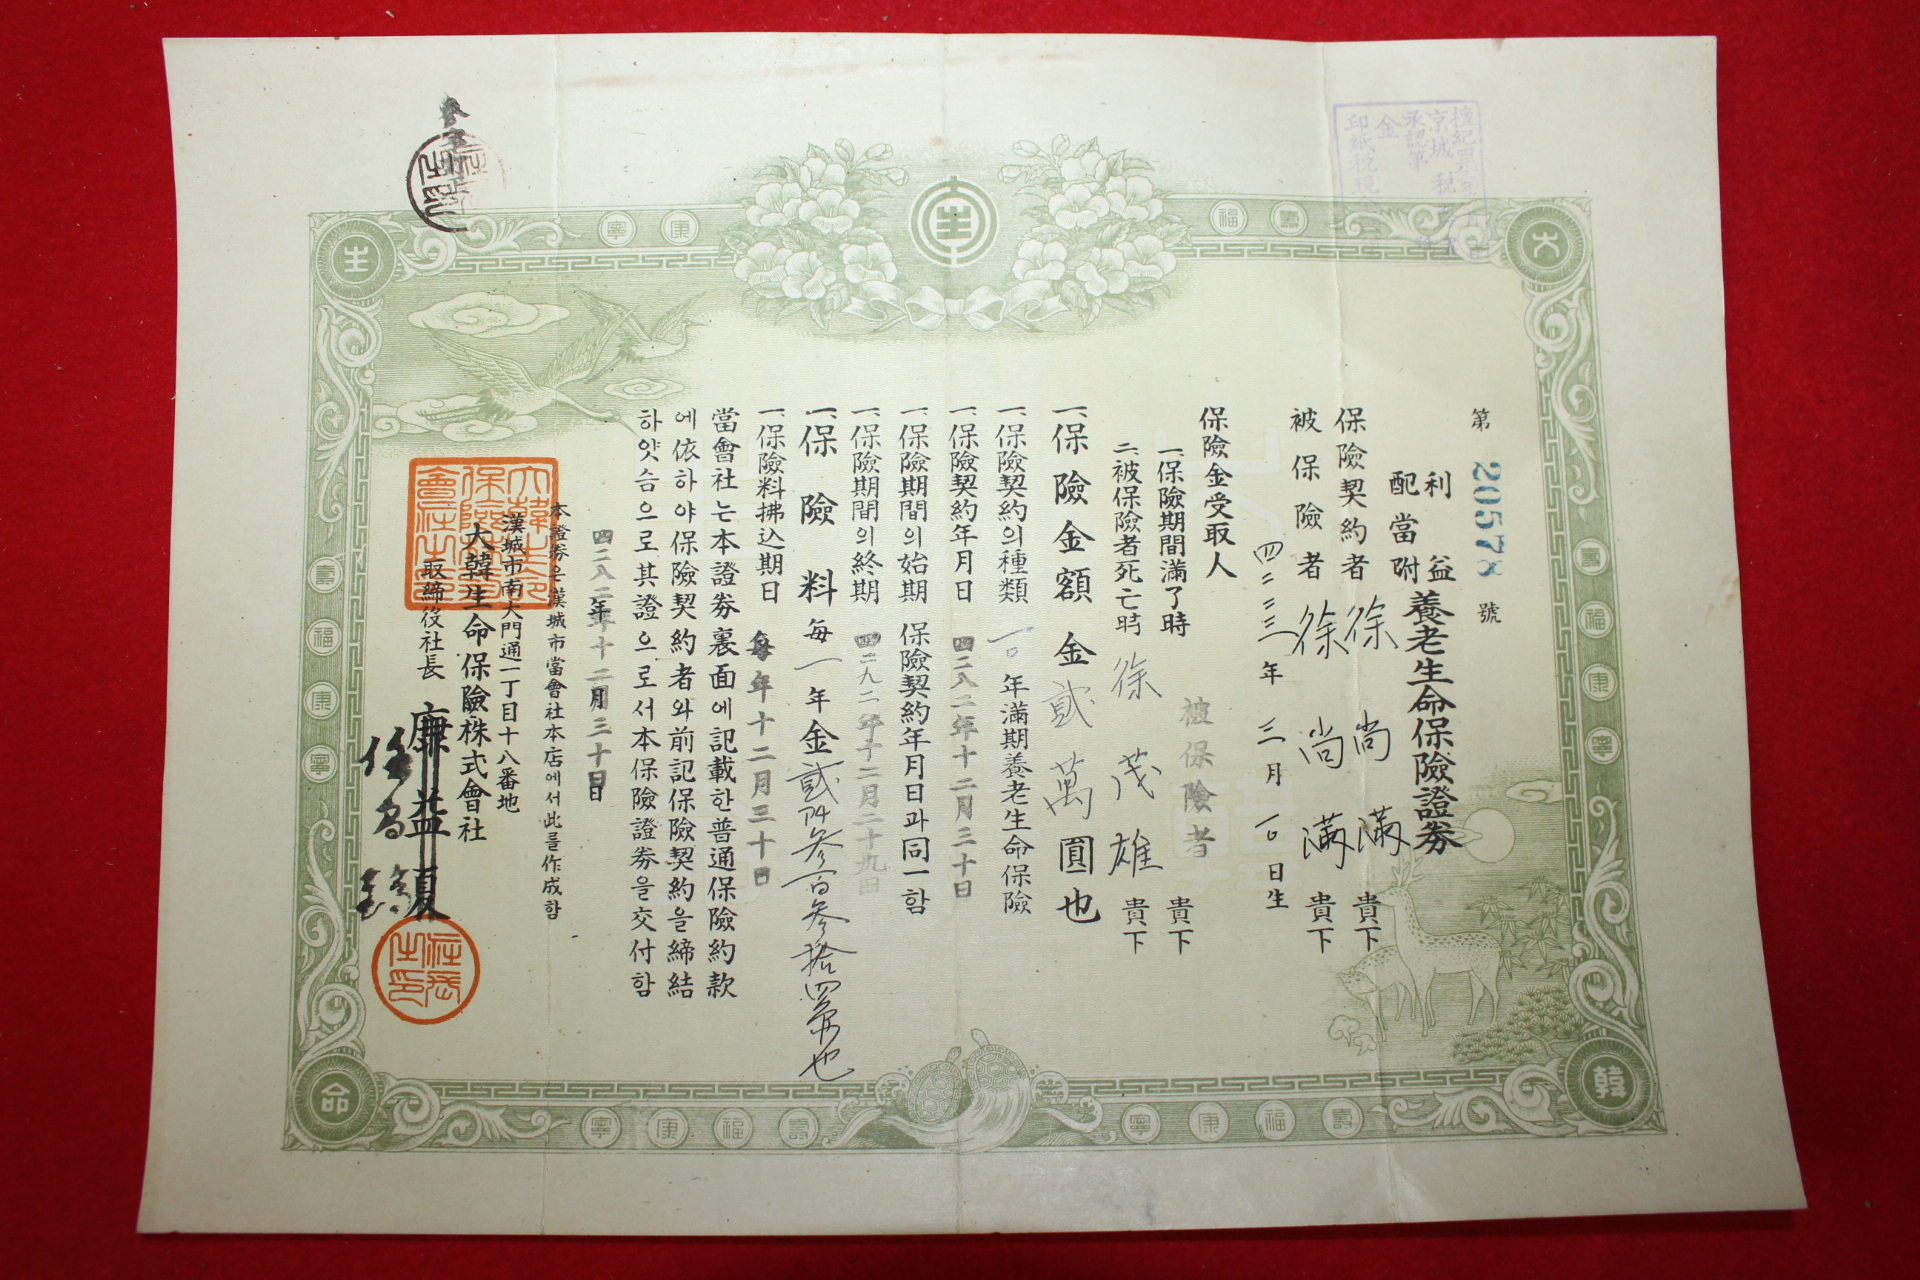 第 20578 號
利益
配當附
養老生命保險證券
保險契約者 徐尚满 貴下
被保險者 徐尚满 貴下
四二三三年三月一〇日生
保險金受取人
一、保險期間滿了時 被保險者 貴下
二、被保險者死亡時 徐茂雄 貴下
一、保險金額 金貳萬圓也
一、保險契約의種類 一〇年滿期養老生命保險
一、保險契約年月日 四二八二年十二月三十日
一、保險期間의始期 保險契約年月日과同一함
一、保險期間의終期 四二九二年十二月二十九日
一、保險料 每一年 金貳阡參百參拾四圓也
一、保險料拂込期日 每年十二月三十日
當會社는本證券裏面에記載한普通保險約款
에依하야保險契約者와前記保險契約을締結
하얏슴으로其證으로서本保險證券을交付함
四二八二年十二月三十日
本證券은漢城市當會社本店에서此를作成함
漢城市南大門通一丁目十八番地
大韓生命保險株式會社
取締役社長
生
大
命
韓
寧
康
福
壽
壽
福
康
寧
壽
福
康
寧
寧
康
福
壽
寧
康
福
壽